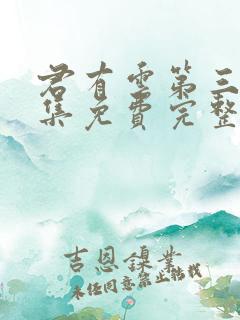 君有雲第三
集免費完整
吉恩鎳業
未经同意禁止转载